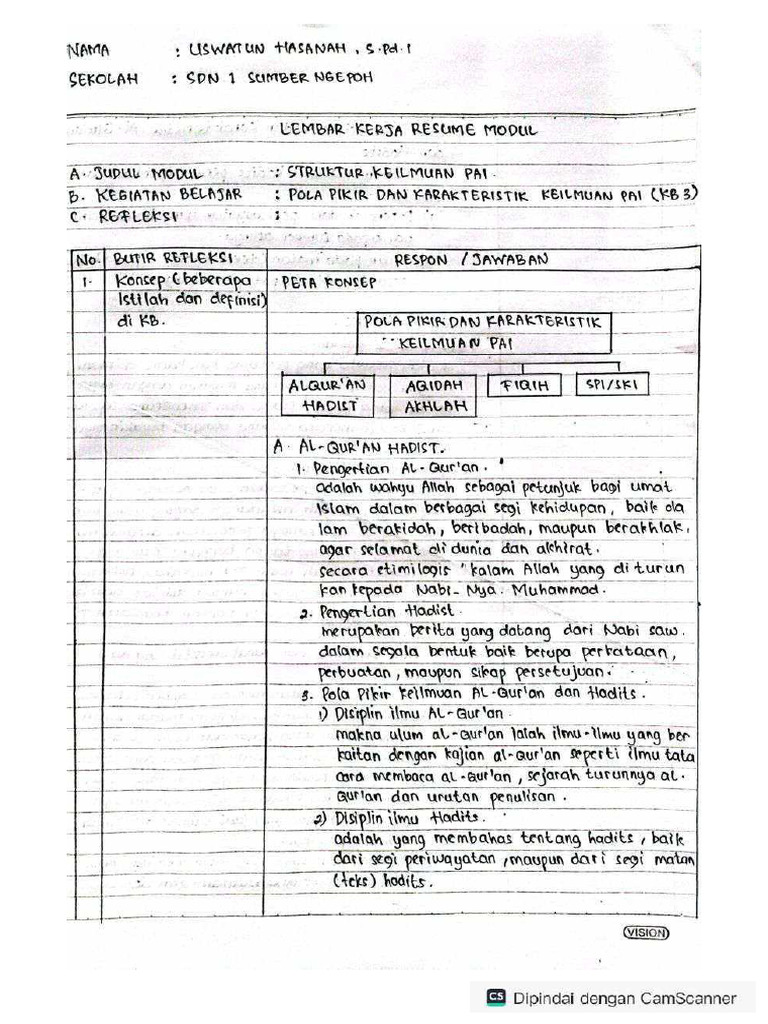 NAMA : USWATUN HASANAH, S.Pd.I
SEKOLAH : SDN 1 SUMBER NGEPOH
LEMBAR KERJA RESUME MODUL
A. JUDUL MODUL : STRUKTUR KEILMUAN PAI.
B. KEGIATAN BELAJAR : POLA PIKIR DAN KARAKTERISTIK KEILMUAN PAI (KB 3)
C. REFLEKSI :
No. BUTIR REFLEKSI RESPON / JAWABAN
1. Konsep (beberapa : PETA KONSEP
Istilah dan definisi)
di KB.
POLA PIKIR DAN KARAKTERISTIK
KEILMUAN PAI
ALQUR'AN AQIDAH FIQIH SPI/SKI
HADIST AKHLAH
A. AL-QUR'AN HADIST.
1. Pengertian Al-Qur'an.
adalah wahyu Allah sebagai petunjuk bagi umat
Islam dalam berbagai segi kehidupan, baik da
lam berakidah, beribadah, maupun berakhlak,
agar selamat di dunia dan akhirat.
secara etimilogis " kalam Allah yang di turun
kan kepada Nabi-Nya. Muhammad.
2. Pengertian Hadist.
merupakan berita yang datang dari Nabi saw.
dalam segala bentuk baik berupa perkataan,
perbuatan, maupun sikap persetujuan.
3. Pola Pikir Keilmuan AL-Qur'an dan Hadits.
1) Disiplin ilmu AL-Qur'an.
makna ulum al-Qur'an ialah ilmu-ilmu yang ber
kaitan dengan kajian al-Qur'an seperti ilmu tata
cara membaca al-Qur'an, sejarah turunnya al-
Qur'an dan urutan penulisan.
2) Disiplin ilmu Hadits.
adalah yang membahas tentang hadits, baik
dari segi periwayatan, maupun dari segi matan
(teks) hadits.
VISION
CS Dipindai dengan CamScanner